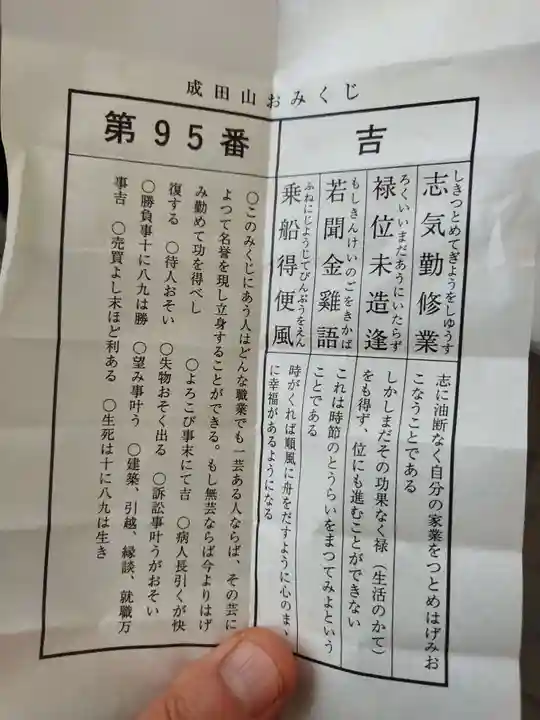 成田山おみくじ
吉
第95番
しきつとめてぎょうをしゆうす
志気勤修業
ろくいいまだあうにいたらず
禄位未造逢
もしきんけいのごをきかば
若聞金雞語
ふねにじようじてびんぷうをえん
乗船得便風
志に油断なく自分の家業をつとめはげみお
こなうことである
しかしまだその功果なく禄(生活のかて)
をも得ず、位にも進むことができない
これは時節のとうらいをまつてみよという
ことである
時がくれば順風に舟をだすように心のまゝ
に幸福があるようになる
〇このみくじにあう人はどんな職業でも一芸ある人ならば、その芸に
よつて名誉を現し立身することができる。もし無芸ならば今よりはげ
み勤めて功を得べし 〇よろこび事末にて吉 〇病人長引くが快
復する 〇待人おそい 〇失物おそく出る 〇訴訟事叶うがおそい
〇勝負事十に八九は勝 〇望み事叶う 〇建築、引越、縁談、就職万
事吉 〇売買よし末ほど利ある 〇生死は十に八九は生き